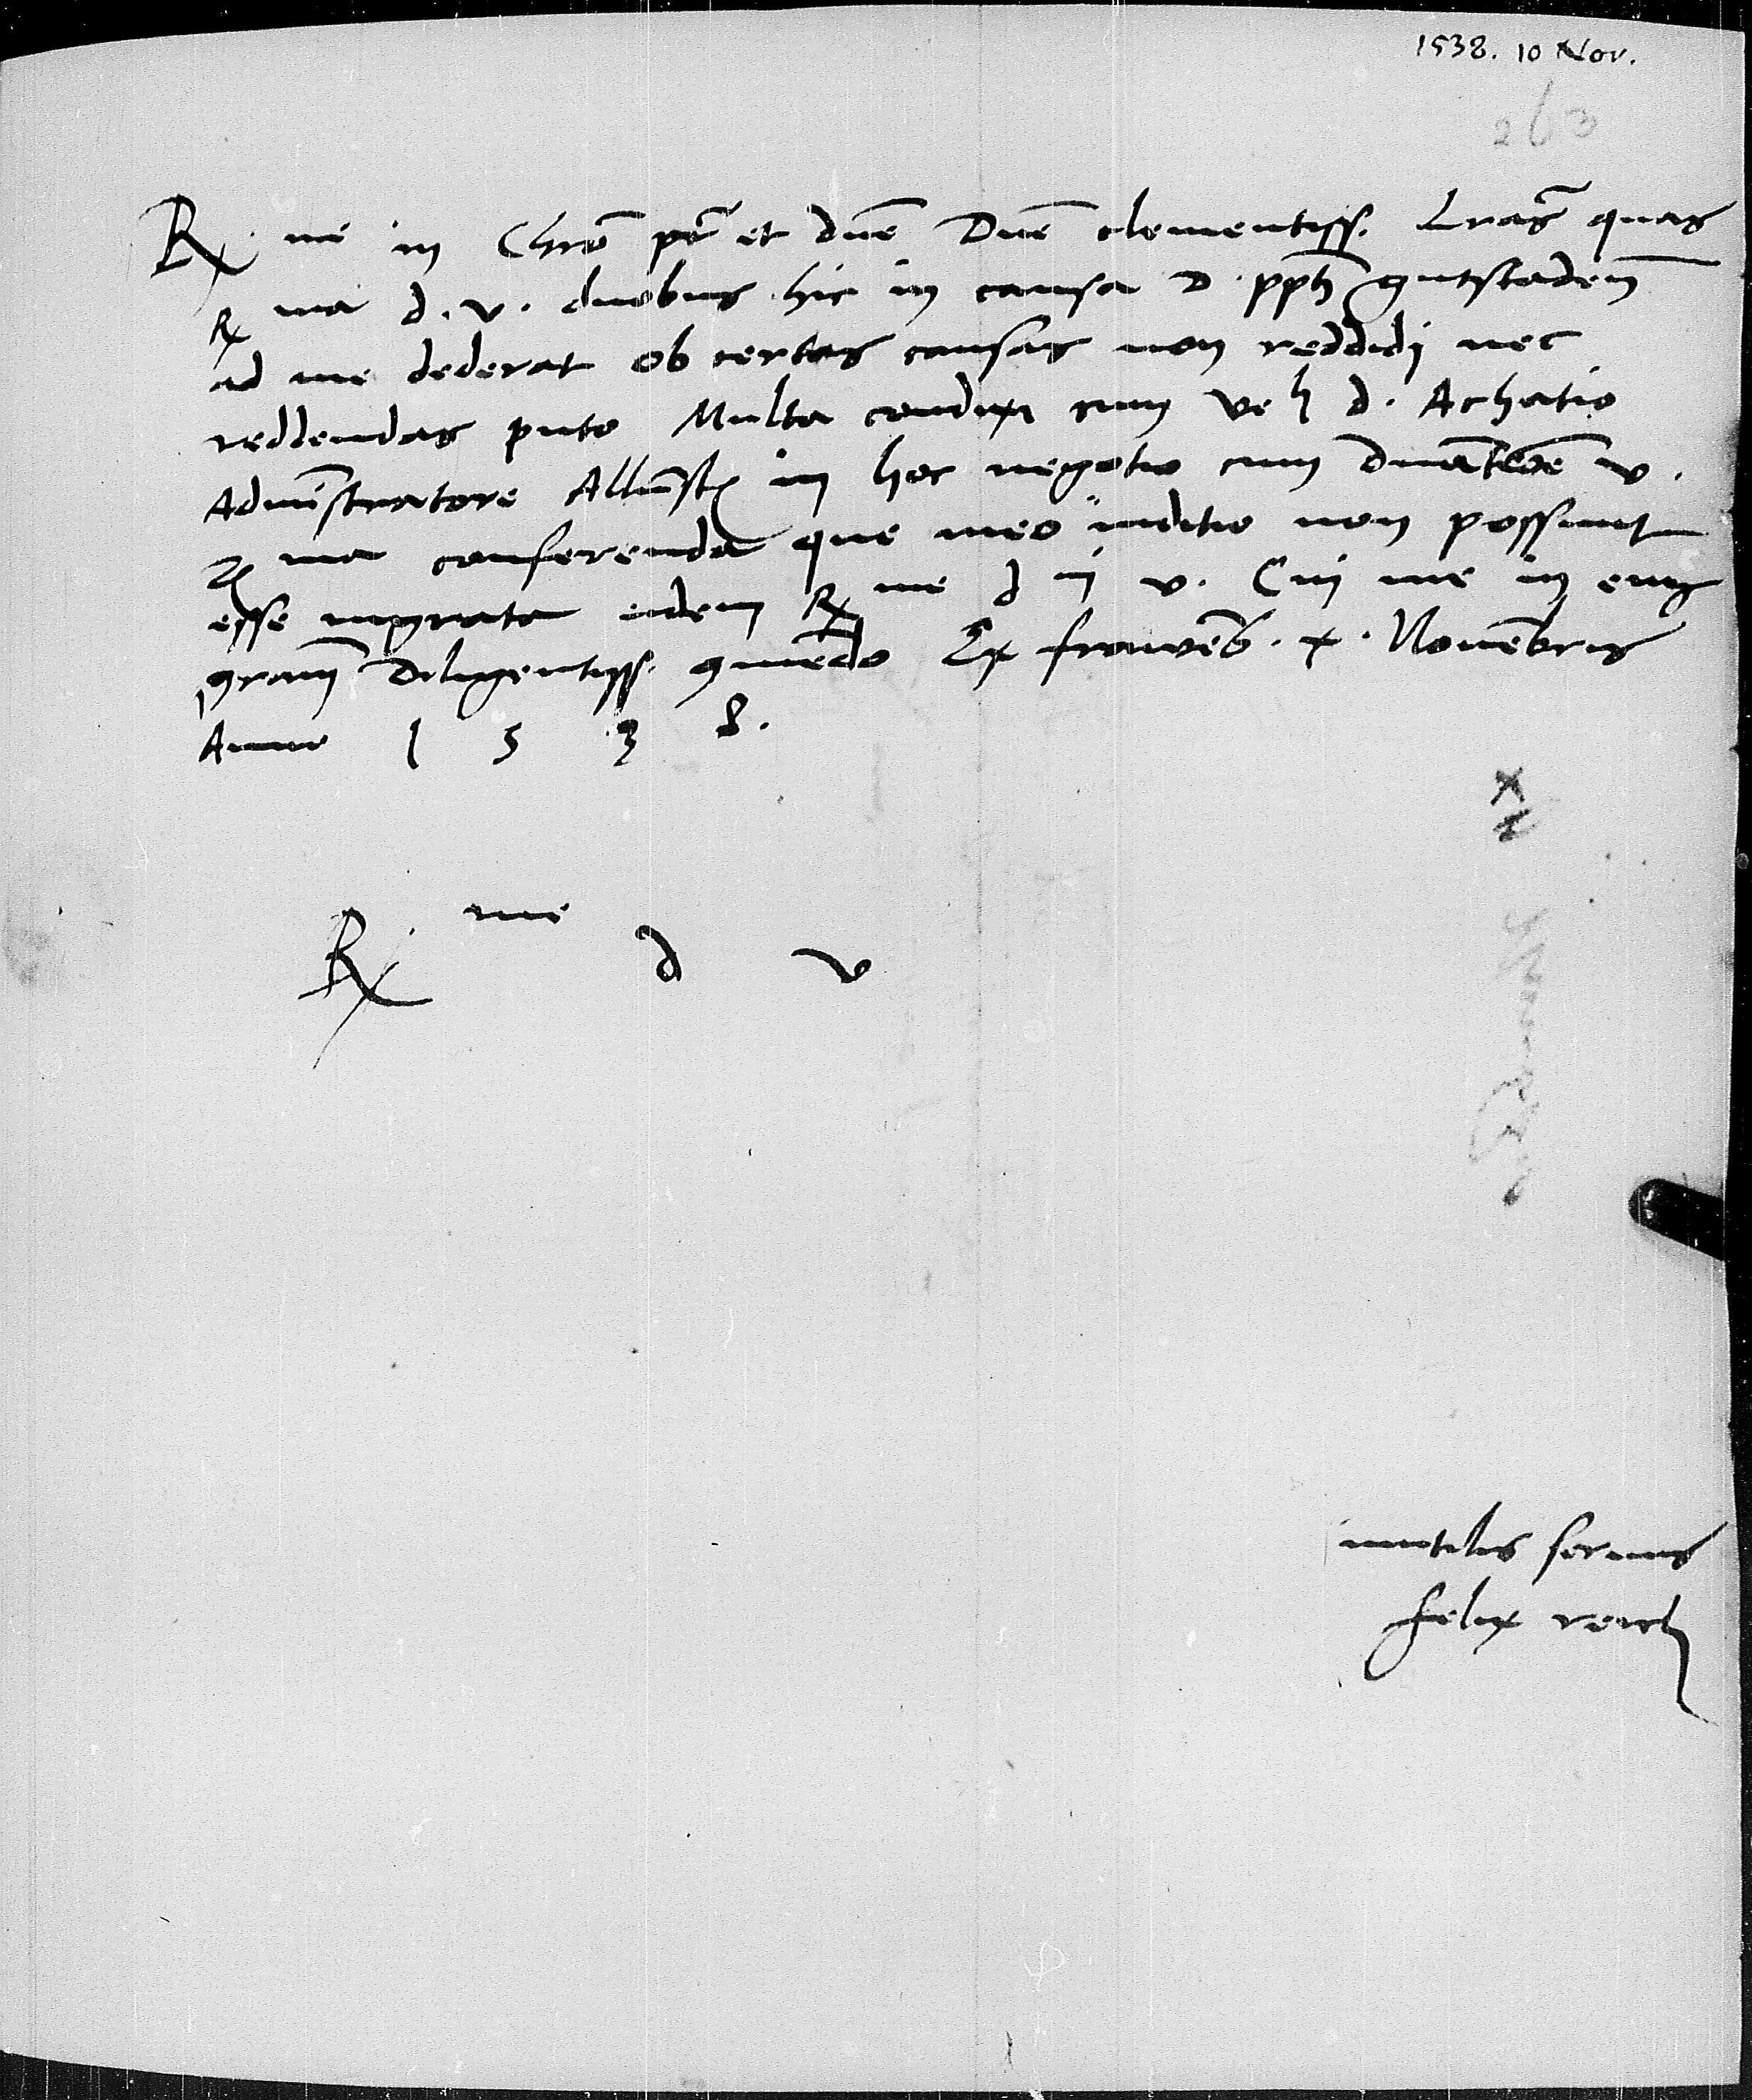 1538. 10 Nov.
263
Rx me in Chro pr et dne Dne clementiss. Lras quas
Rx ma d. v. duobus hic in causa D. ppti gutstaden
ad me dederat ob certas causas non reddidi nec
reddendas puto Multa conduxi cum Ve li d. Achatio
Administratore Allensten in hoc negotio cum
R ma conferenda que meo iuditio non possunt
esse ingrata eidem Rx me d v. Cui me in eius
gram diligentiss. comendo Ex frawenb. x. Novembris
Anno 1 5 3 8.
Rx me d v
inutilis servus
felix reich